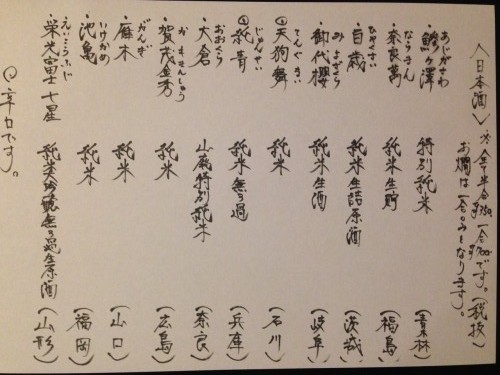 〈日本酒〉 ※全て半合350 一合700です。(税抜)
お燗は一合のみとなります。
あじがさわ
・鰺ヶ澤 特別純米 (青森)
ならまん
・奈良萬 純米生貯 (福島)
ひゃくさい
・百歳 純米生詰原酒 (茨城)
みよざくら
・御代櫻 純米生酒 (岐阜)
てんぐまい
天狗舞 純米 (石川)
じゅんせい
純青 純米無ろ過 (兵庫)
おおくら
・大倉 山廃特別純米 (奈良)
かもきんしゅう
・賀茂金秀 純米 (広島)
がんぎ
・雁木 純米 (山口)
いけかめ
・池亀 純米 (福岡)
えいこうふじ
・栄光冨士 七星 純米吟醸無ろ過生原酒 (山形)
辛口です。